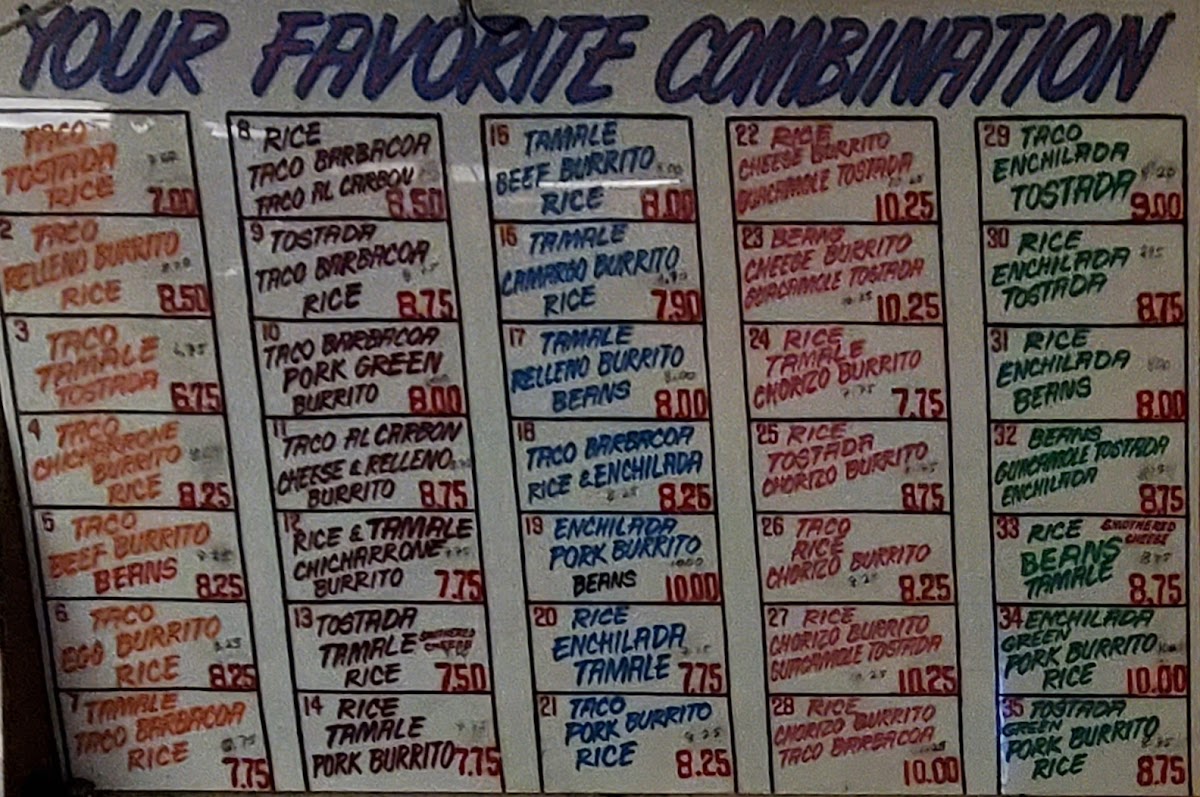 YOUR FAVORITE COMBINATION
TACO
TOSTADA
RICE 7.00
2 TACO
RELLENO BURRITO
RICE 8.50
3 TACO
TAMALE
TOSTADA 6.75
4 TACO
CHICHARRONE
BURRITO
RICE 8.25
5 TACO
BEEF BURRITO
BEANS 8.25
6 TACO
EGG BURRITO
RICE 8.25
7 TAMALE
TACO BARBACOA
RICE 7.75
8 RICE
TACO BARBACOA
TACO AL CARBON
8.50
9 TOSTADA
TACO BARBACOA
RICE 8.75
10 TACO BARBACOA
PORK GREEN
BURRITO 8.00
11 TACO AL CARBON
CHEESE & RELLENO
BURRITO 8.75
12 RICE & TAMALE
CHICHARRONE
BURRITO 7.75
13 TOSTADA
TAMALE SMOTHERED
RICE 7.50
14 RICE
TAMALE
PORK BURRITO 7.75
15 TAMALE
BEEF BURRITO
RICE 8.00
16 TAMALE
CAMARGO BURRITO
RICE 7.90
17 TAMALE
RELLENO BURRITO
BEANS 8.00
18 TACO BARBACOA
RICE & ENCHILADA
8.25
19 ENCHILADA
PORK BURRITO
BEANS 10.00
20 RICE
ENCHILADA
TAMALE 7.75
21 TACO
PORK BURRITO
RICE 8.25
22 RICE
CHEESE BURRITO
GUACAMOLE TOSTADA
10.25
23 BEANS
CHEESE BURRITO
GUACAMOLE TOSTADA
10.25
24 RICE
TAMALE
CHORIZO BURRITO
7.75
25 RICE
TOSTADA
CHORIZO BURRITO
8.75
26 TACO
RICE
CHORIZO BURRITO
8.25
27 RICE
CHORIZO BURRITO
GUACAMOLE TOSTADA
10.25
28 RICE
CHORIZO BURRITO
TACO BARBACOA
10.00
29 TACO
ENCHILADA
TOSTADA
9.00
30 RICE
ENCHILADA
TOSTADA
8.75
31 RICE
ENCHILADA
BEANS 8.00
32 BEANS
GUACAMOLE TOSTADA
ENCHILADA
8.75
33 RICE SMOTHERED
CHEESE
BEANS
TAMALE 8.75
34 ENCHILADA
GREEN
PORK BURRITO
RICE 10.00
35 TOSTADA
GREEN
PORK BURRITO
RICE 8.75